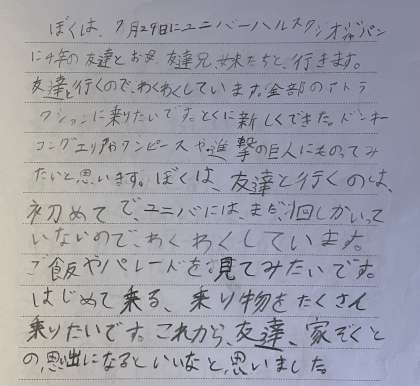 ぼくは、7月29日にユニバーハルスタジオジャパン
に4年の友達とお母、友達兄妹たちと、行きます。
友達と行くので、わくわくしています。全部のアトラ
クションに乗りたいです。とくに新しくできた。ドンキー
コングエリアやワンピースや進撃の巨人にものってみ
たいと思います。ぼくは、友達と行くのは、
初めてで、ユニバには、まだ、1回しかいって
いないので、わくわくしています。
ご飯やパレードを見てみたいです。
はじめて乗る、乗り物をたくさん
乗りたいです。これから、友達、家ぞくと
の、思い出になるといいなと、思いました。